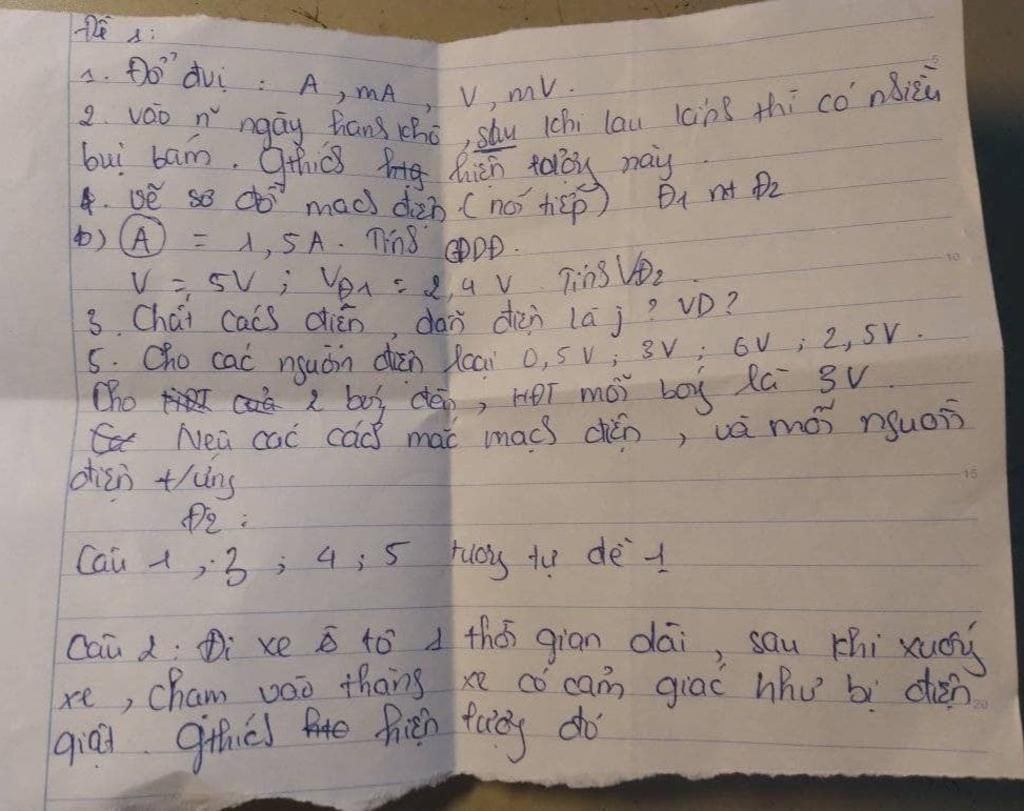 Đề 1:
1. Đổi đvị : A, mA, V, mV.
2. vào n~ ngày hanh khô, sau khi lau kính thì có nhiều
bụi bám. Gthích hiện tượng này.
4. vẽ sơ đồ mạch điện (nối tiếp) Đ1 nt Đ2
b) (A) = 1,5A. Tính CĐDĐ.
V = 5V ; VĐ1 = 2,4 V Tính VĐ2
3. Chất cách điện, dẫn điện là j? VD?
5. Cho các nguồn điện loại 0,5V ; 3V ; 6V ; 2,5V.
Cho 2 bóng đèn, HĐT mỗi bóng là 3V.
Nêu các cách mắc mạch điện, và mỗi nguồn
điện t/ứng
Đ2 :
Câu 1, 3 ; 4 ; 5 tương tự đề 1
Câu 2 : Đi xe ô tô 1 thời gian dài, sau khi xuống
xe, chạm vào thành xe có cảm giác như bị điện
giật. Gthích hiện tượng đó